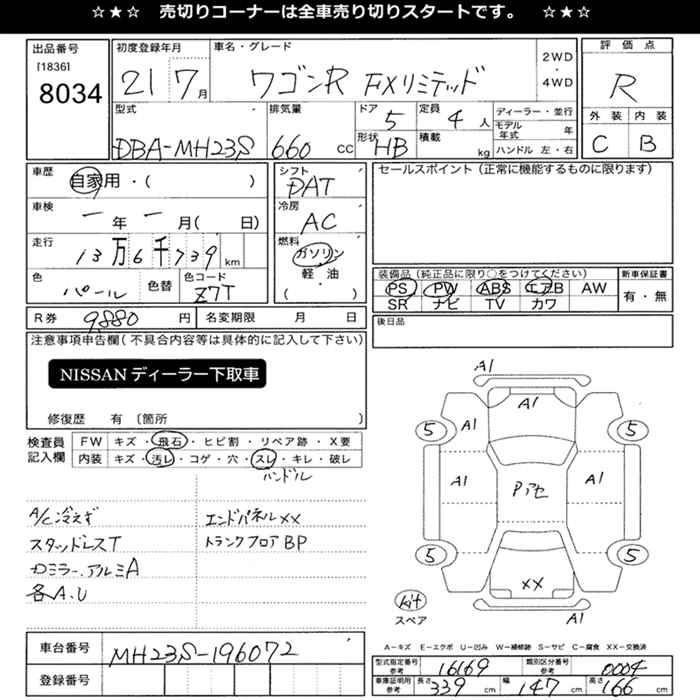 ☆★☆ 売切りコーナーは全車売り切りスタートです。 ☆★☆
出品番号
[1836]
8034
初度登録年月
21 7月
車名・グレード
ワゴンR FXリミテッド
2WD
・
4WD
評価点
R
外装 内装
C B
型式
DBA-MH23S
排気量
660 cc
ドア 5
形状 HB
定員 4 人
積載 kg
ディーラー・並行
モデル年式 年
ハンドル 左・右
車歴
自家用・( )
車検
一年一月( 日)
走行
13万6千739km
色
パール
色替
色コード
Z7T
シフト
DAT
冷房
AC
燃料
ガソリン
軽・油
( )
セールスポイント(正常に機能するものに限ります)
装備品(純正品に限り○をつけてください)
PS PW ABS エアB AW
SR ナビ TV カワ
新車保証書
有・無
R券 9,880 円
名変期限 月 日
後日品
注意事項申告欄(不具合内容等は具体的に記入して下さい)
NISSANディーラー下取車
修復歴 有 〔箇所 〕
検査員
記入欄
FW キズ・飛石・ヒビ割・リペア跡・X要
内装 キズ・汚レ・コゲ・穴・スレ・キレ・破レ
ハンドル
A/C冷えず
スタッドレスT
カミラー、アルミA
各A.U
エンドパネルXX
トランクフロアBP
A1
A1
5 A1 5
A1 Pアセ A1
5 5
XX
A1
kit
スペア
A-キズ E-エクボ U-凹み W-補修跡 S-サビ C-腐食 XX-交換済
車台番号 MH23S-196072
登録番号
型式指定番号
参考
16169
類別区分番号
参考
0004
車庫証明用
参考
長さ 339 cm
幅 147 cm
高さ 166 cm